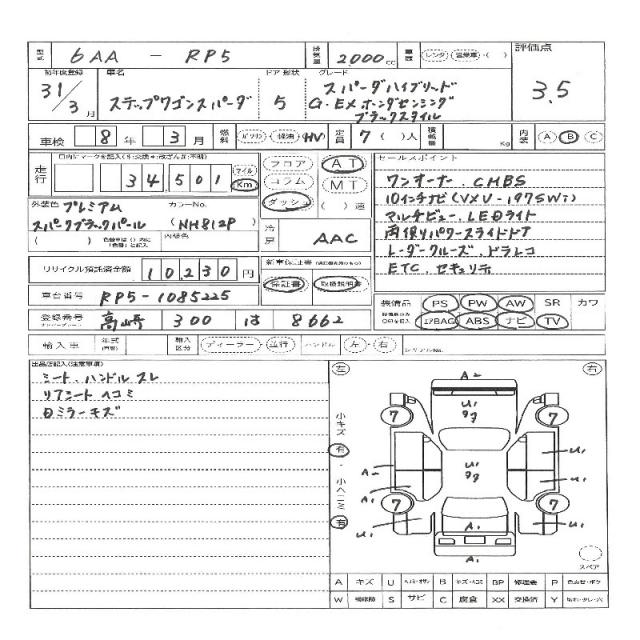 型式 6AA - RP5 排気量 2000 cc 車歴 レンタ 営業車・( ) 評価点
初年度登録 車名 ドア 形状 グレード
31/3月 ステップワゴンスパーダ 5 スパーダハイブリッド
G・EXホンダセンシング
ブラックスタイル
3.5
車検 8年 3月 燃料 ガソリン 軽油 HV 定員 7( )人 積載量 Kg 内装 A B C
走行 34,501 マイル Km
フロア AT
コラム MT
ダッシュ ( )速
セールスポイント
ワンオーナー. CMBS
10インチナビ(VXU-197SWi)
マルチビュー. LEDライト
両側パワースライドドア
レーダークルーズ. ドラレコ
ETC. セキュリティ
外装色 プレミアム カラーNo.
スパークブラックパール (NH812P)
( ) 内装色
冷房 AAC
リサイクル預託済金額 10,230円
新車保証書
保証書 取扱説明書
車台番号 RP5-1085225
登録番号 高崎 300 は 8662
装備品 PS PW AW SR カワ
エアBAG ABS ナビ TV
輸入車 年式 輸入区分 ディーラー・並行 ハンドル 左・右 シリアルNo.
出品店記入(注意事項)
シート.ハンドル スレ
リアシート ヘコミ
ミラーキズ
左 右
小キズ 有・小ヘコミ 有
A2
U1
7 7
U1
U1
A2
A1
U1
7 7
U1 U1
A1
A1
スペア
A キズ U B キズ・ヘコミ BP P
W S サビ C 腐食 XX 交換済 Y